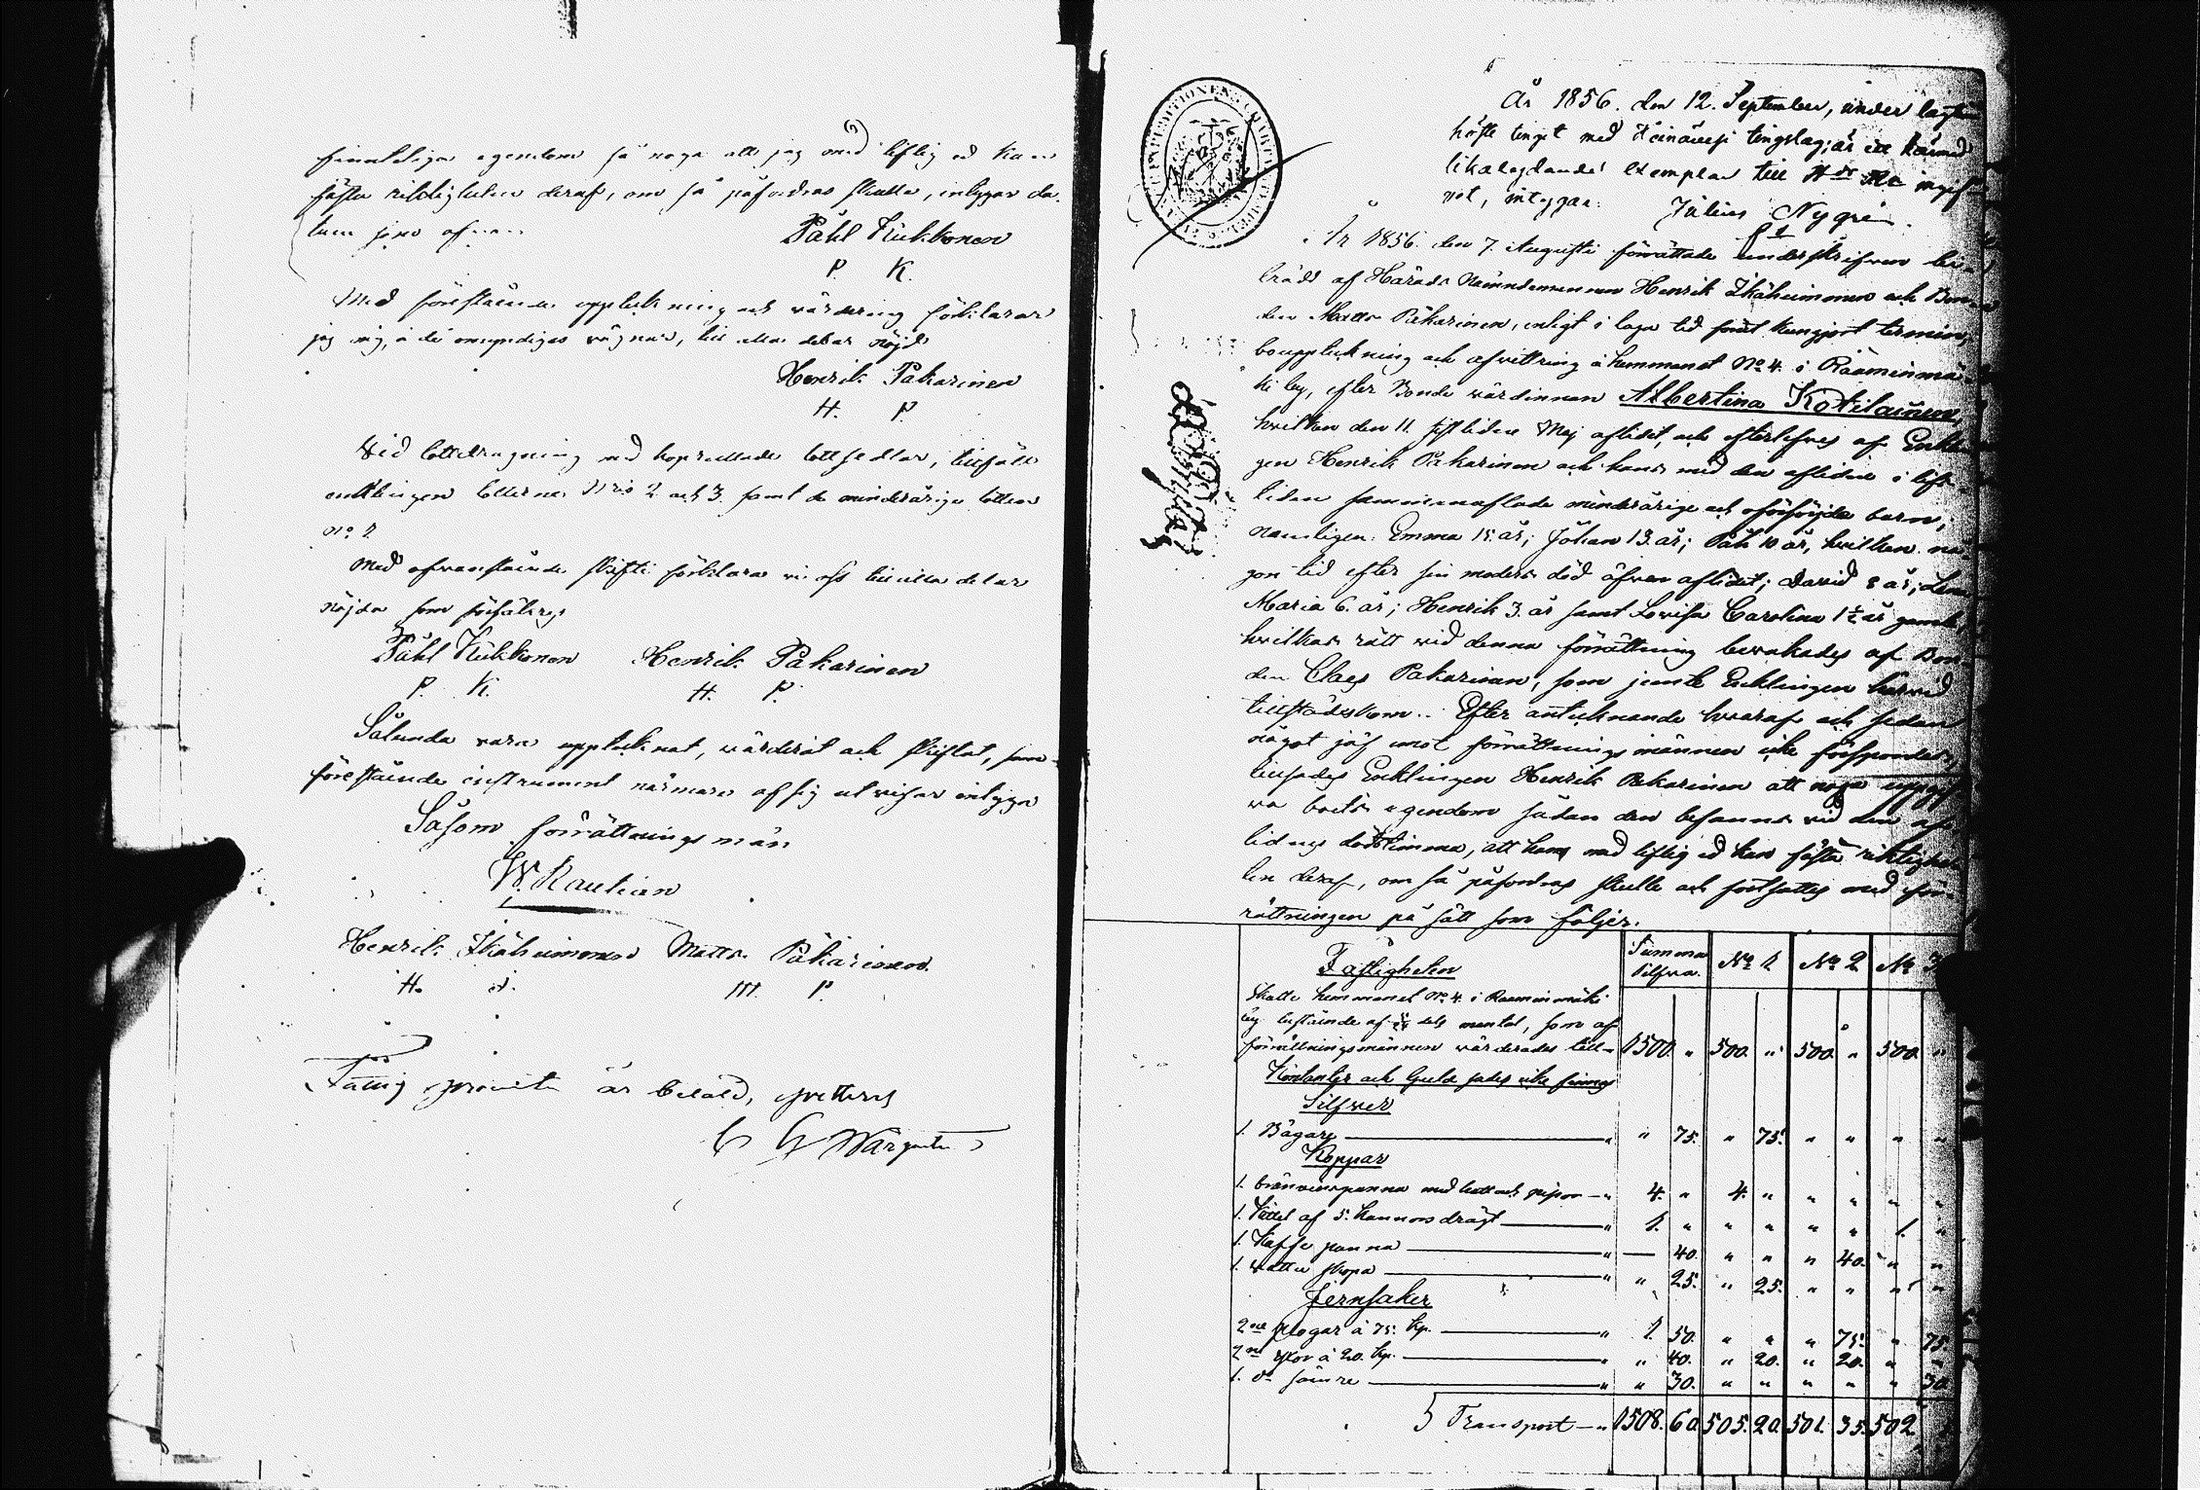 egendom så noga att jag med liflig ed kan
fästa riktigheten deraf, om så påfordras skulle, intygar da-
tum som ofvan
Påhl Kukkonen
P. K.
Med förestående uppteckning och värdering förklarar
jag mig, å de omyndigas vägnar, till alla delar nöjd
Henrik Pakarinen
H. P.
Vid lottdragning med hoprullade lottsedlar, tillföll
enklingen lotterne Nris 2 och 3. samt de minderårige lotten
No 1
Med ofvanstående skifte förklara vi oss till alla delar
nöjda som försäkras
Påhl Kukkonen Henrik Pakarinen
P. K. H. P.
Sålunda vara upptecknat, värderat och skiftat, som
förestående instrument närmare af sig utvisar intyga
Såsom förrättningsmän
W. Rautian
Henrik Ikäheimonen Matts Päkarinen.
H. I. M. P.
Fattig procenten är betald,
Wargentin
År 1856. den 12. September, under lagtima
höste tinget med Heinävesi tingslag, är ett härmed
likalydande exemplar till ingif-
vet, intygar. Julius Nygrén
År 1856. den 7. Augusti förrättade undertecknad bi-
trädd af Härads Nämndemannen Henrik Ikäheimonen och Bon-
den Matts Päkarinen, enligt i laga tid kungjort termin,
bouppteckning och afvittring å hemmanet No 4. i Rääminmä-
ki by, efter Bonde värdinnan Albertina Kotilainen,
hvilken den 11. sistlidne Maj aflidit, och efterlefves af Enklin-
gen Henrik Pakarinen och hans med den aflidna i lifs-
tiden sammanaflade minderårige och oförsörjda barn,
nämligen: Emma 15. år; Johan 13. år; Påhl 10 år, hvilken nå-
gon tid efter sin moders död äfven aflidit; David 8 år;
Maria 6. år; Henrik 3. år samt Lovisa Carolina 1½ år gamla,
hvilkas rätt vid denna förrättning bevakades af Bon-
den Claes Pakarinen, som jemte Enklingen härvid
tillstädeskom. Efter antecknande hvaraf och sedan
något jäf mot förrättningsmännen icke försports,
tillsades Enklingen Henrik Pakarinen att noga uppgif-
va boets egendom sådan den befanns vid den af-
lidnas dödstimma, att han med liflig ed kan fästa riktighe-
ten deraf, om så påfordras skulle och fortsattes med för-
rättningen på sätt som följer.
Fastigheten Summa Silfver. No 1 No 2 No 3
Skatte hemmanet No 4. i Rääminmäki
by bestående af dels mantal, som af
förrättningsmännen värderades till 1500. " 500. " 500. " 500. "
Kontanter och Guld sades icke finnas
Silfver
1. Bägare " " 75. " 75. " " " "
Koppar
1. bränvinspanna med hatt och pipor " 4. " 4. " " " " "
1. Kittel af 5. kannors drägt " 1. " " " " " 1. "
1. Kaffe panna " — 40. " " " 40. " "
1. vatten skopa " " 25. " 25. " " " "
Jernsaker
2ne plogar à 75. kp. " 1. 50. " " " 75. " 75.
2ne à 20. kp. " " 40. " 20. " 20. " "
1. do sämre " " 30. " " " " " 30.
Transport " 1508. 60. 505. 20. 501. 35. 502.